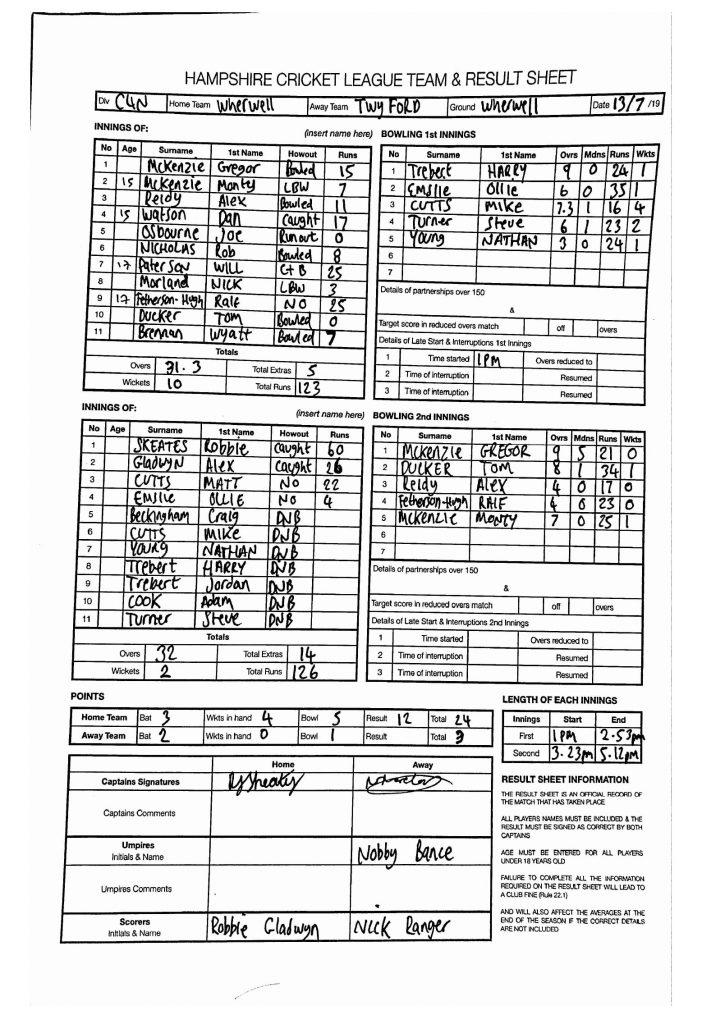 HAMPSHIRE CRICKET LEAGUE TEAM & RESULT SHEET
Div C4N Home Team Wherwell Away Team TWYFORD Ground Wherwell Date 13/7/19
INNINGS OF: (insert name here)
No Age Surname 1st Name Howout Runs
1 McKenzie Gregor Bowled 15
2 15 McKenzie Monty LBW 7
3 Reidy Alex Bowled 11
4 15 Watson Dan Caught 17
5 Osbourne Joe Run out 0
6 NICHOLAS Rob Bowled 8
7 17 Paterson WILL C+B 25
8 Morland NICK LBW 3
9 17 Fetherson-Hugh Ralf NO 25
10 Ducker TOM Bowled 0
11 Brennan Wyatt Bowled 7
Totals
Overs 31.3 Total Extras 5
Wickets 10 Total Runs 123
BOWLING 1st INNINGS
No Surname 1st Name Ovrs Mdns Runs Wkts
1 Trebert HARRY 9 0 24 1
2 Emslie Ollie 6 0 35 1
3 CUTTS MIKE 7.3 1 16 4
4 Turner Steve 6 1 23 2
5 Young NATHAN 3 0 24 1
6
7
Details of partnerships over 150
&
Target score in reduced overs match off overs
Details of Late Start & Interruptions 1st Innings
1 Time started 1PM Overs reduced to
2 Time of interruption Resumed
3 Time of interruption Resumed
INNINGS OF: (insert name here)
No Age Surname 1st Name Howout Runs
1 SKEATES Robbie Caught 60
2 Gladwyn Alex Caught 26
3 CUTTS MATT NO 22
4 Emslie OLLIE NO 4
5 Beckingham Craig DNB
6 CUTTS MIKE DNB
7 Young NATHAN DNB
8 Trebert HARRY DNB
9 Trebert Jordan DNB
10 COOK Adam DNB
11 Turner Steve DNB
Totals
Overs 32 Total Extras 14
Wickets 2 Total Runs 126
BOWLING 2nd INNINGS
No Surname 1st Name Ovrs Mdns Runs Wkts
1 McKenzie GREGOR 9 5 21 0
2 DUCKER TOM 8 1 34 1
3 Reidy Alex 4 0 17 0
4 Fetherson-Hugh RALF 4 0 23 0
5 McKenzie MONTY 7 0 25 1
6
7
Details of partnerships over 150
&
Target score in reduced overs match off overs
Details of Late Start & Interruptions 2nd Innings
1 Time started Overs reduced to
2 Time of interruption Resumed
3 Time of interruption Resumed
POINTS
Home Team Bat 3 Wkts in hand 4 Bowl 5 Result 12 Total 24
Away Team Bat 2 Wkts in hand 0 Bowl 1 Result Total 3
LENGTH OF EACH INNINGS
Innings Start End
First 1PM 2.53pm
Second 3.23pm 5.12pm
Home Away
Captains Signatures
Captains Comments
Umpires
Initials & Name Nobby Bance
Umpires Comments
Scorers
Initials & Name Robbie Gladwyn Nick Ranger
RESULT SHEET INFORMATION
THE RESULT SHEET IS AN OFFICIAL RECORD OF
THE MATCH THAT HAS TAKEN PLACE
ALL PLAYERS NAMES MUST BE INCLUDED & THE
RESULT MUST BE SIGNED AS CORRECT BY BOTH
CAPTAINS
AGE MUST BE ENTERED FOR ALL PLAYERS
UNDER 18 YEARS OLD
FAILURE TO COMPLETE ALL THE INFORMATION
REQUIRED ON THE RESULT SHEET WILL LEAD TO
A CLUB FINE (Rule 22.1)
AND WILL ALSO AFFECT THE AVERAGES AT THE
END OF THE SEASON IF THE CORRECT DETAILS
ARE NOT INCLUDED